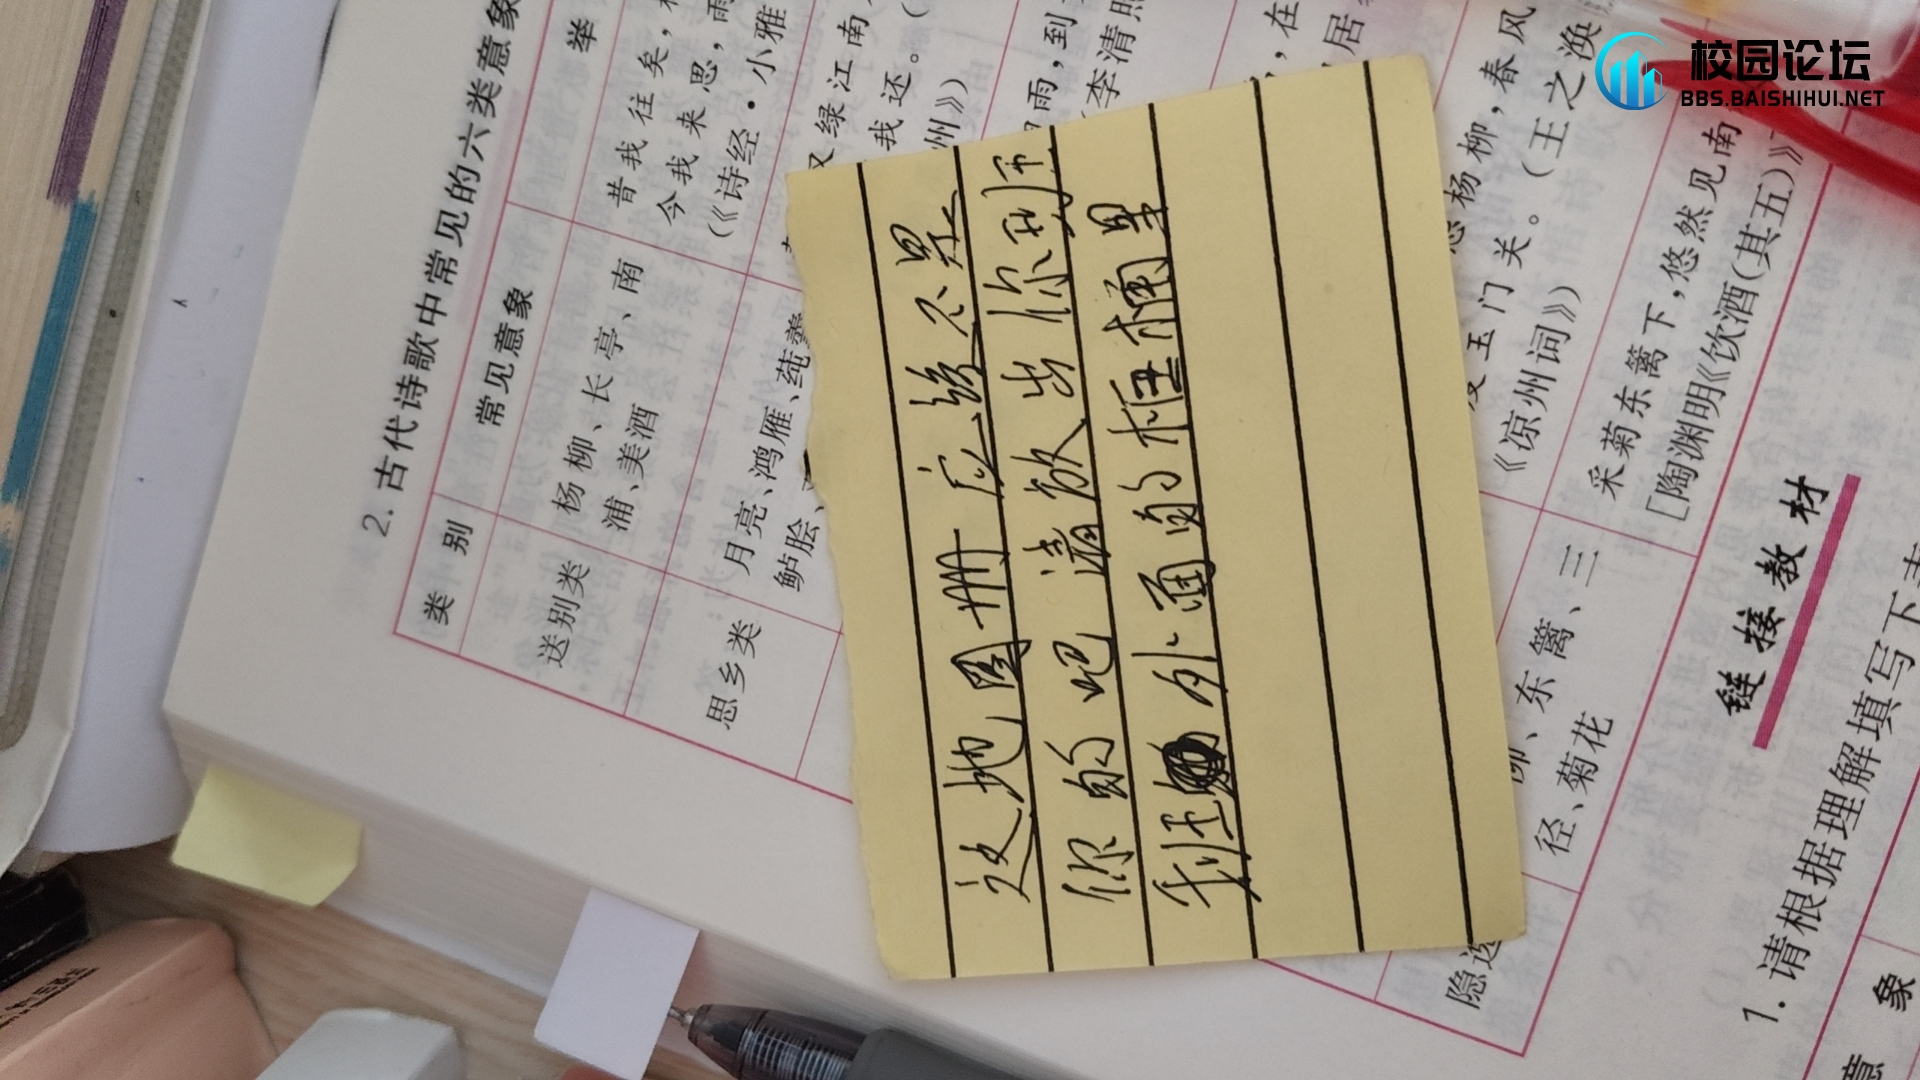 校园论坛
BBS.BAISHIHUI.NET
2. 古代诗歌中常见的六类意象
类别
常见意象
举
送别类
杨柳、长亭、南
浦、美酒
昔我往矣,
今我来思,雨
(《诗经·小雅
思乡类
月亮、鸿雁、莼羹
鲈脍、
又绿江南
我还。(
州》)
雨,到
(李清照
,在
居
杨柳,春风
玉门关。(王之涣
《凉州词》)
隐
、东篱、三
径、菊花
采菊东篱下,悠然见南
[陶渊明《饮酒(其五)》
这地图册应该不是
你的吧 请放出你到班
我班外面的柜桶里
链接教材
1. 请根据理解填写下
意象